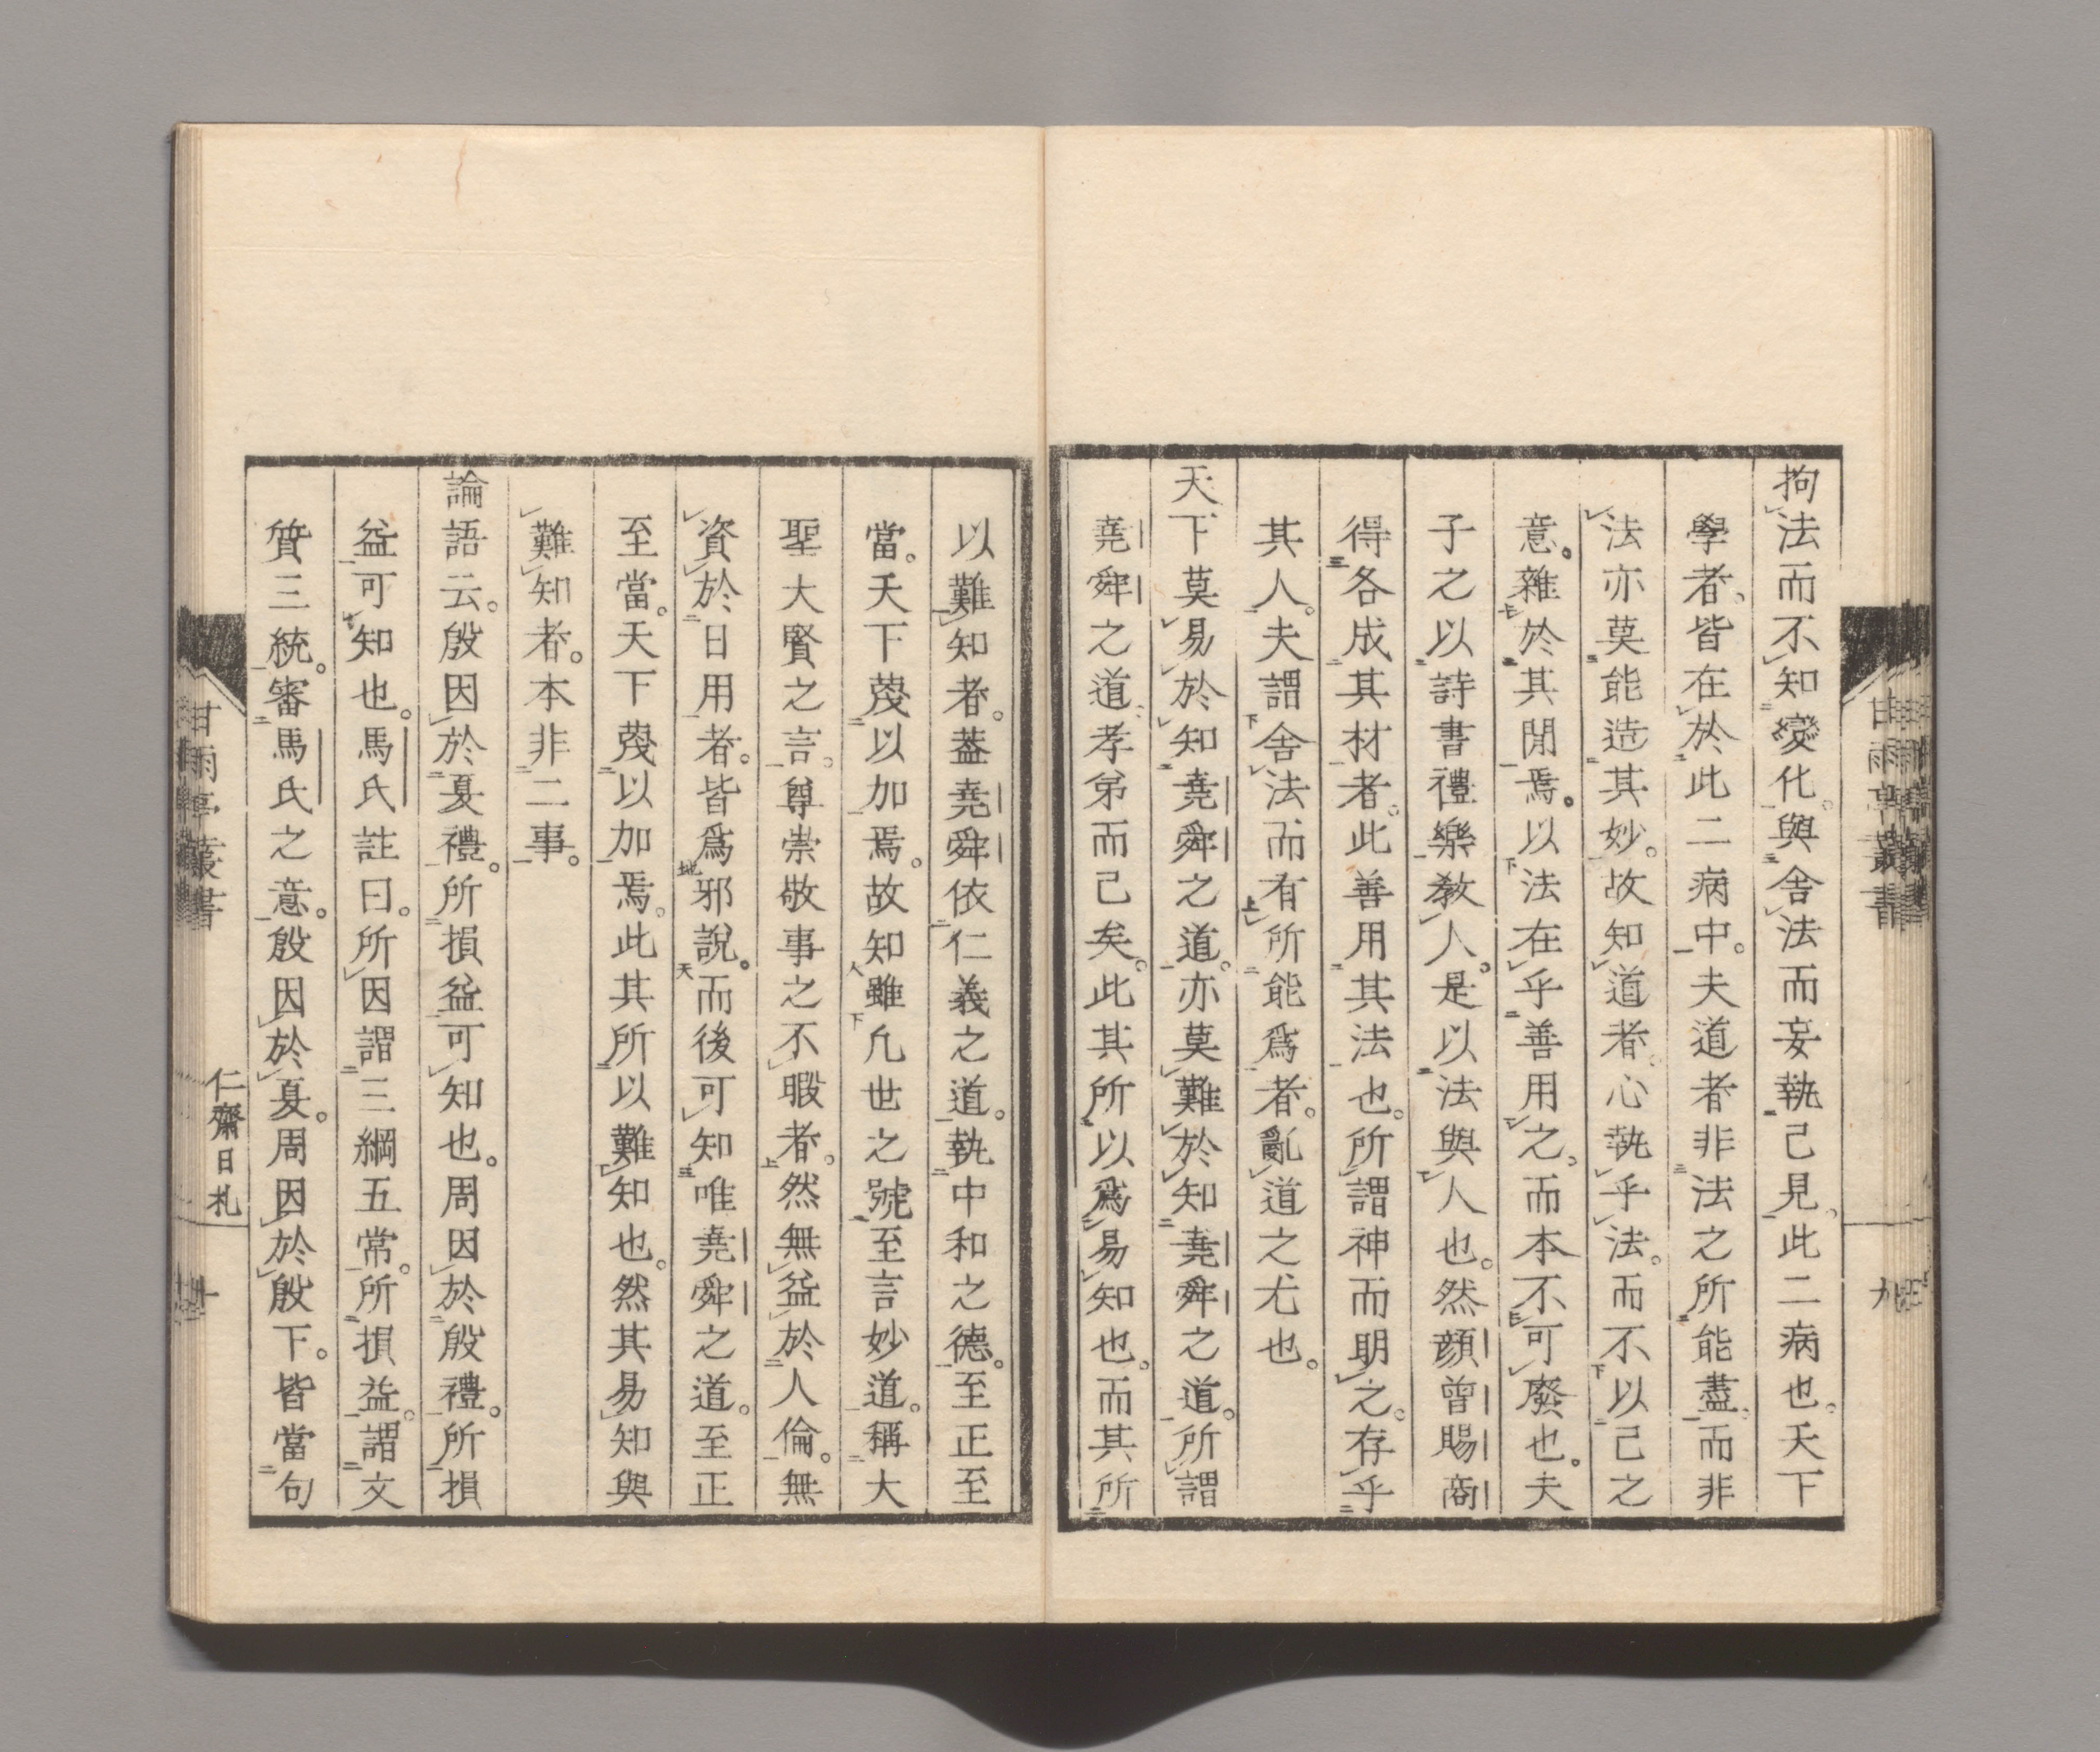 拘法而不知變化。與舍法而妄執己見。此二病也。天下
學者。皆在於此二病中。夫道者非法之所能盡。而非
法亦莫能造其妙。故知道者。心執乎法。而不以己之
意。雜於其間焉。以法在乎善用之。而本不可廢也。夫
子之以詩書禮樂教人。是以法與人也。然顔曾賜商
得各成其材者。此善用其法也。所謂神而明之。存乎
其人。夫謂舍法而有所能爲者。亂道之尤也。
天下莫易於知堯舜之道。亦莫難於知堯舜之道。所謂
堯舜之道。孝弟而已矣。此其所以爲易知也。而其所
以難知者。蓋堯舜依仁義之道。執中和之德。至正至
當。天下蔑以加焉。故知雖凢世之號至言妙道。稱大
聖大賢之言。尊崇敬事之不暇者。然無益於人倫。無
資於日用者。皆爲邪說。而後可知唯堯舜之道。至正
至當。天下蔑以加焉。此其所以難知也。然其易知與
難知者。本非二事。
論語云。殷因於夏禮。所損益可知也。周因於殷禮。所損
益可知也。馬氏註曰。所因謂三綱五常。所損益。謂文
質三統。審馬氏之意。殷因於夏。周因於殷下。皆當句
甘雨亭叢書
仁齋日札